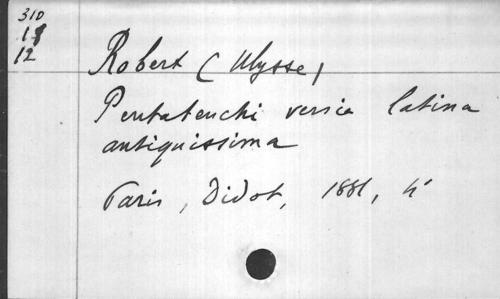 310
18
12
Robert (Ulysse)
Pentateuchi versio latina
antiquissima
Paris, Didot, 1881, 4°